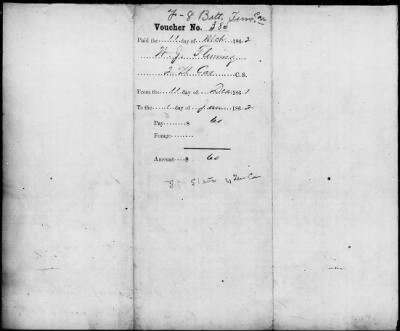 F - 8 Batt. Tenn Cav
Voucher No. 380
Paid the 11 day of Feb 1862
W. J. Fleming
2 Lt Cav C.S.
From the 11 day of Dec 1861
To the 1 day of Jan 1862
Pay $ 60
Forage
Amount $ 60
4 Ten Cav